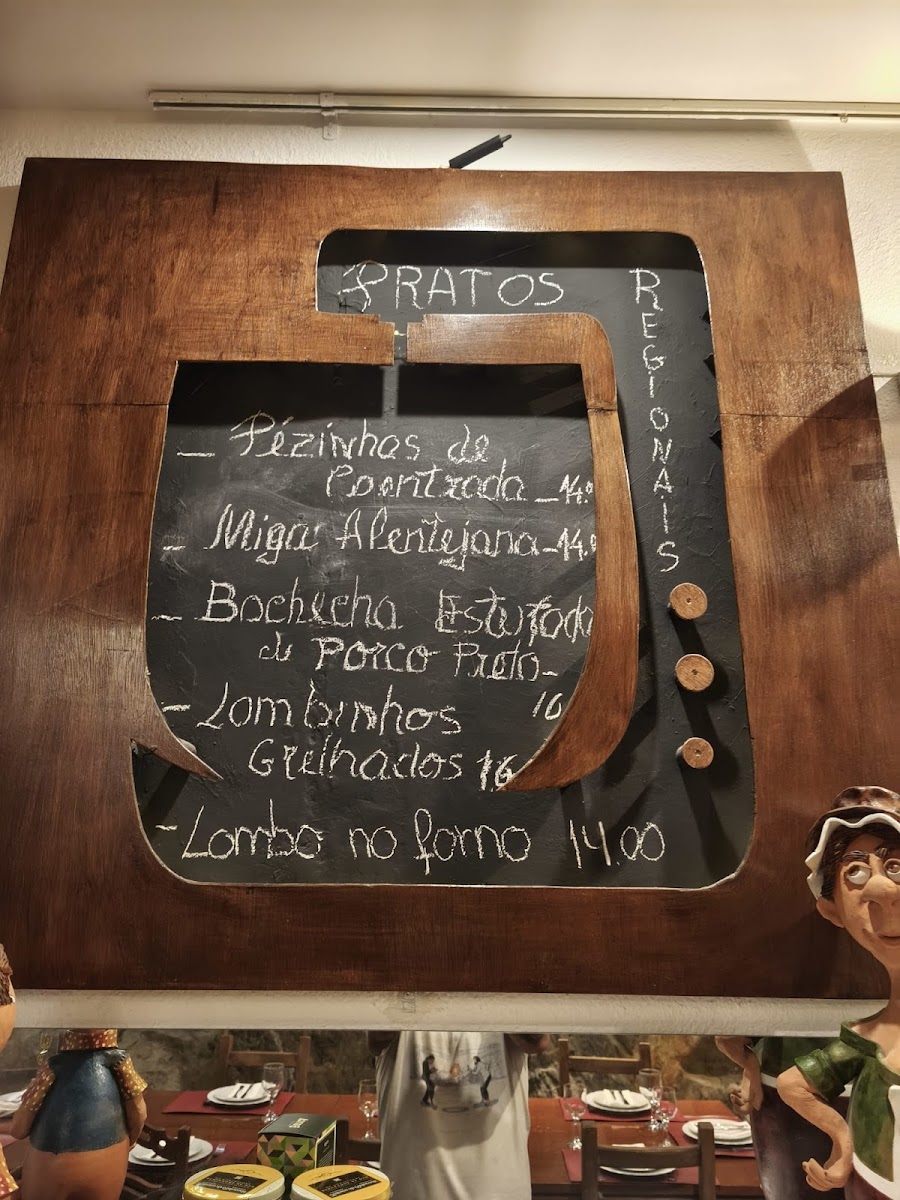 PRATOS
REGIONAIS
- Pézinhos de
Coentrada - 14.0
- Miga Alentejana - 14.0
- Bochecha Estufada
de Porco Preto -
16
- Lombinhos
Grelhados 16
- Lombo no forno 14.00